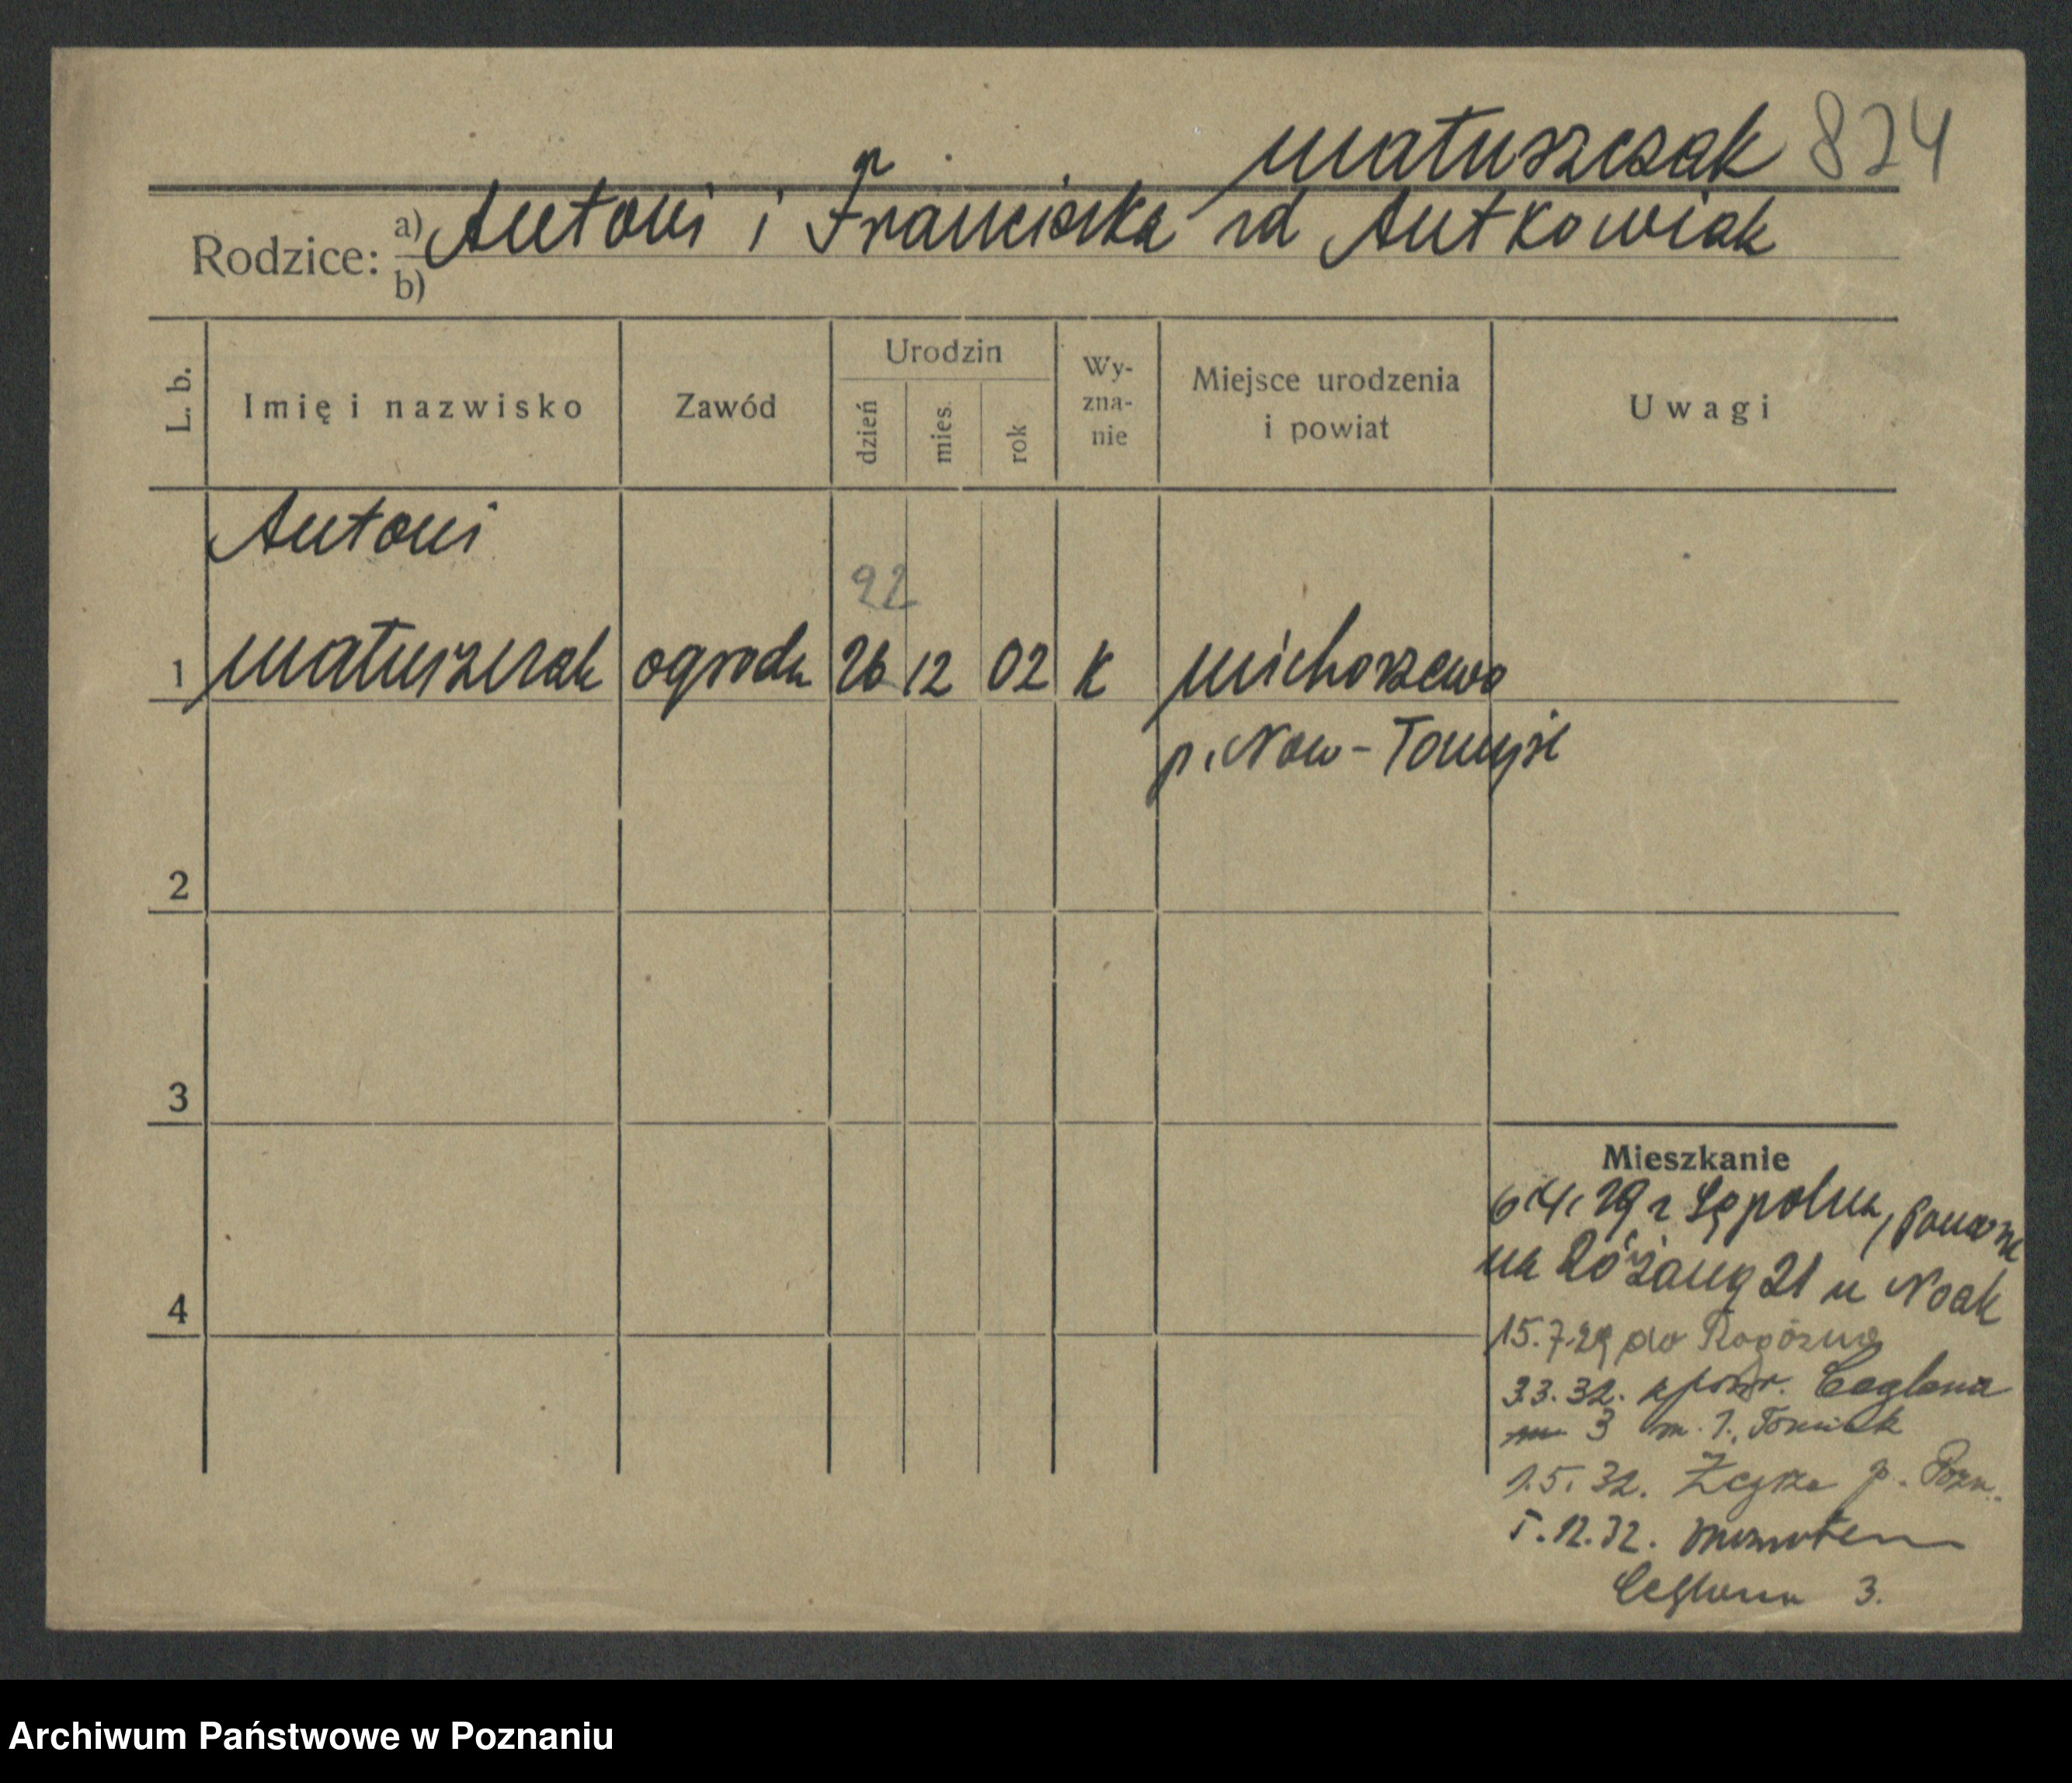 Matuszczak 824
Rodzice: a) Antoni i Franciszka rd Antkowiak
b)
L. b. Imię i nazwisko Zawód Urodzin dzień mies. rok Wy-zna-nie Miejsce urodzenia i powiat Uwagi
Antoni
22
1 Matuszczak ogrodn 26 12 02 K Michorzewo
p. Now-Tomyśl
2
3
Mieszkanie
6.4.29 z Sępolna, Pomorze
na Różaną 21 u Noak
4
15.7.29 do Rogóźna
33.32. z pow. Ceglana
3 m. 1. Tomiak
1.5.32. p. Pozn.
5.12.32.
Ceglana 3.
Archiwum Państwowe w Poznaniu